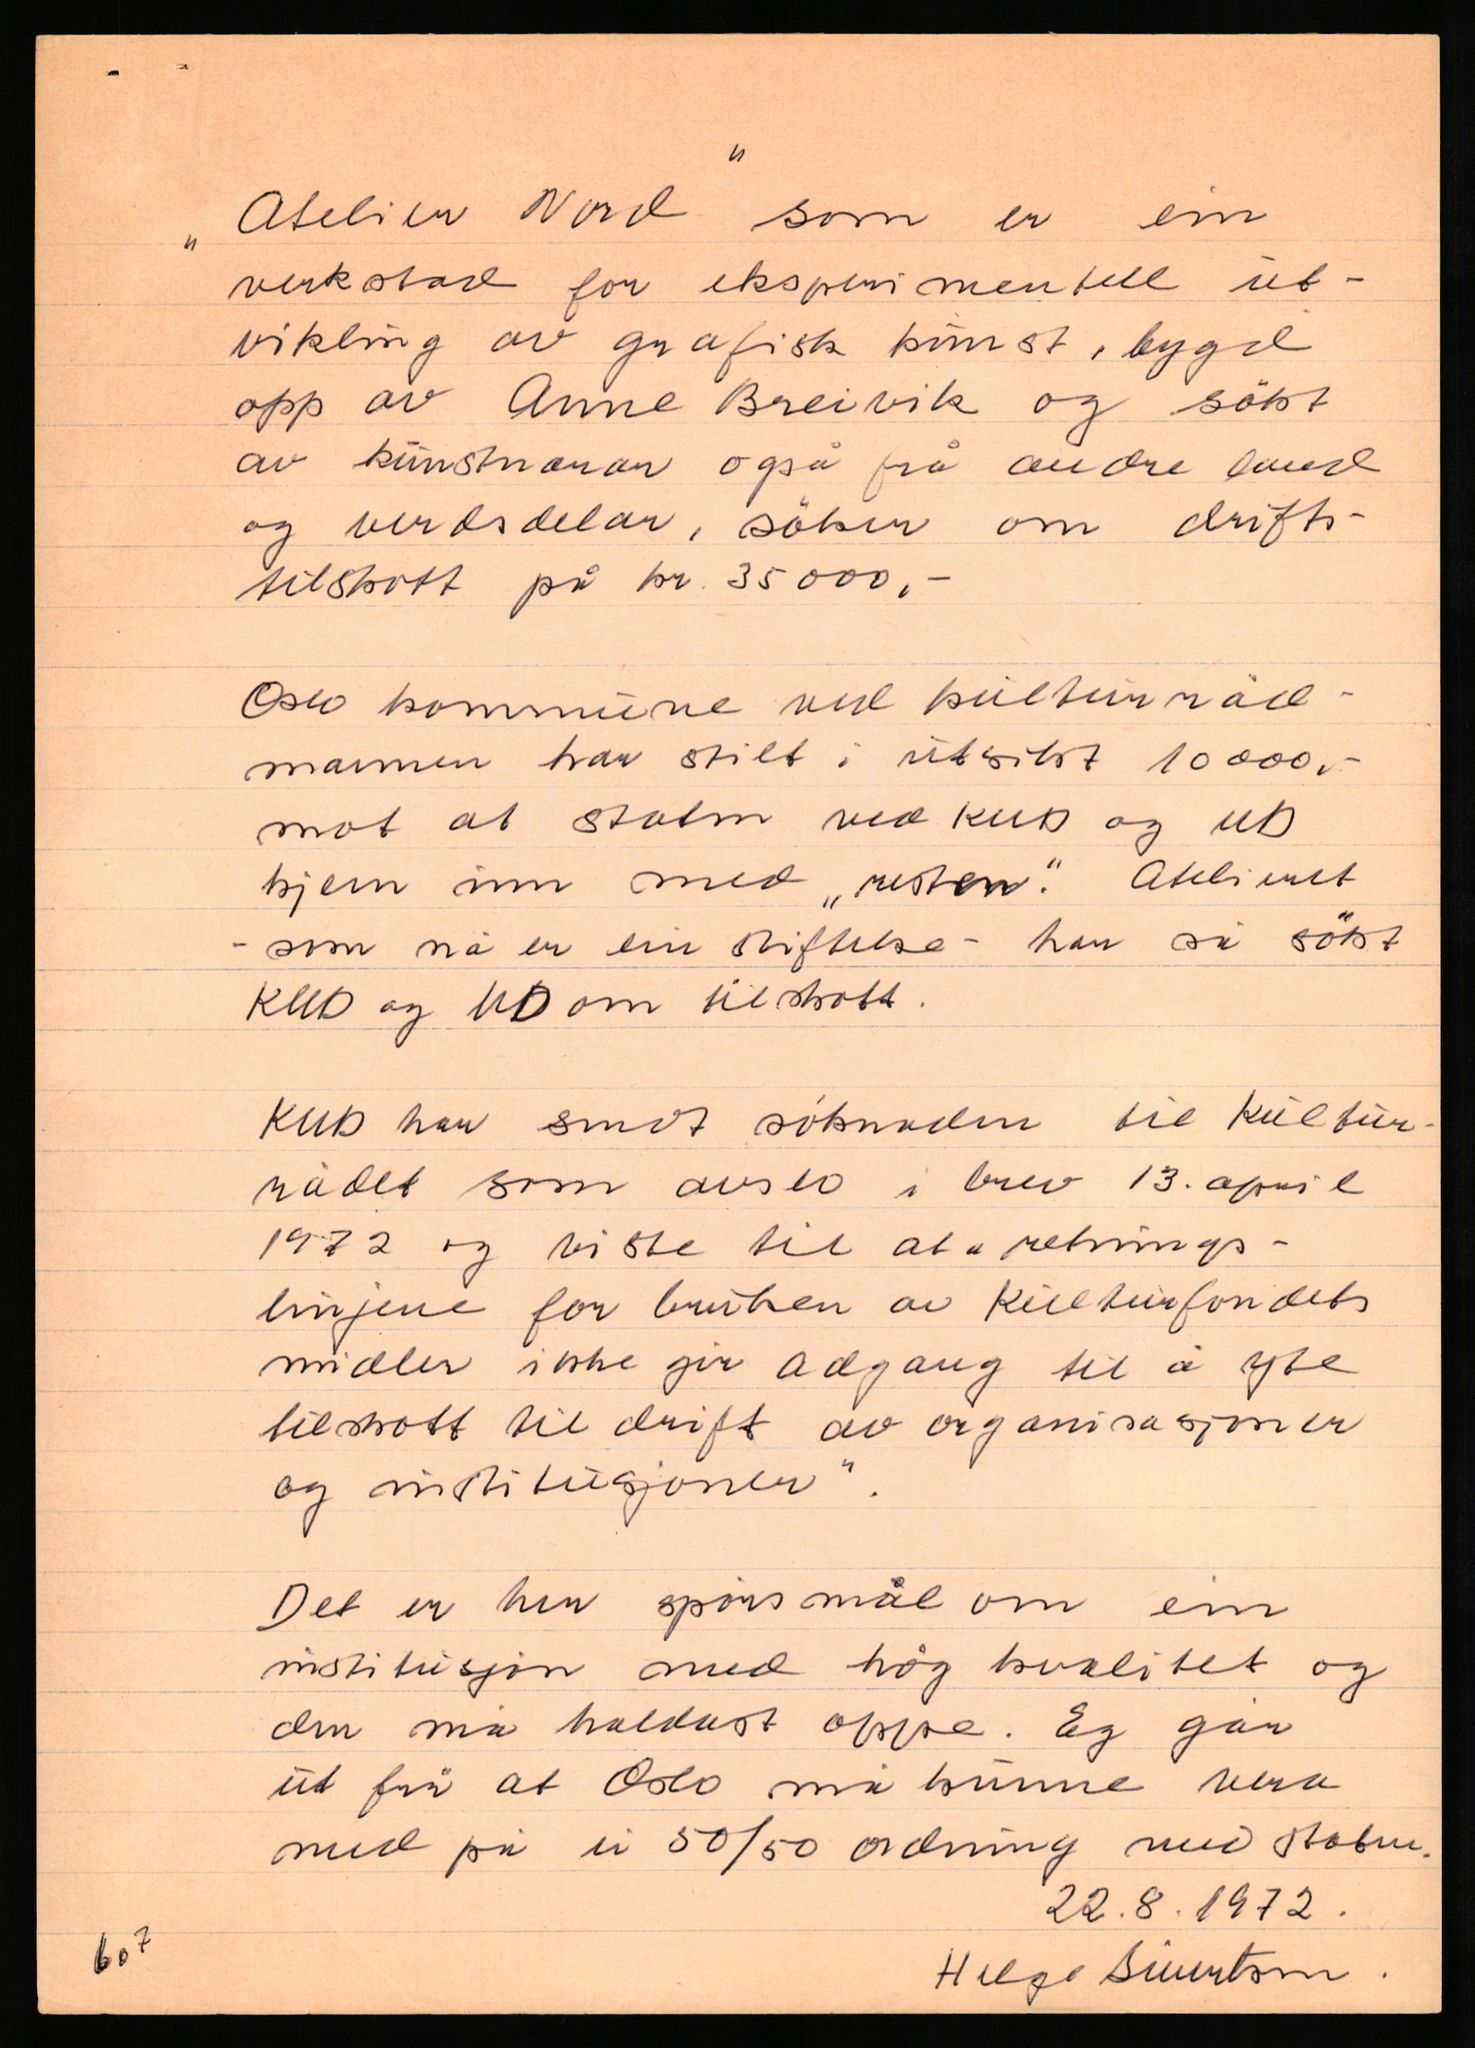 "Atelier Nord" som er ein
verkstad for eksperimentell ut-
vikling av grafisk kunst, bygd
opp av Anne Breivik og sökt
av kunstnarar også frå andre land
og verdsdelar, söker om drifts-
tilskott på kr. 35000,-
Oslo kommune ved kulturråd-
mannen har stilt i utsikt 10000,-
mot at staten ved KUD og UD
kjem inn med „resten". Atelieret
- som nå er ein stiftelse - har så sökt
KUD og UD om tilskott.
KUD har sendt söknaden til Kultur-
rådet som avslo i brev 13. april
1972 og viste til at "retnings-
linjene for bruken av Kulturfondets
midler ikke gir adgang til å yte
tilskott til drift av organisasjoner
og institusjoner".
Det er her spörsmål om ein
institusjon med høg kvalitet og
den må haldast oppe. Eg går
ut frå at Oslo må kunne vera
med på ei 50/50 ordning med staten.
22.8.1972.
Helge Sivertsen.
607